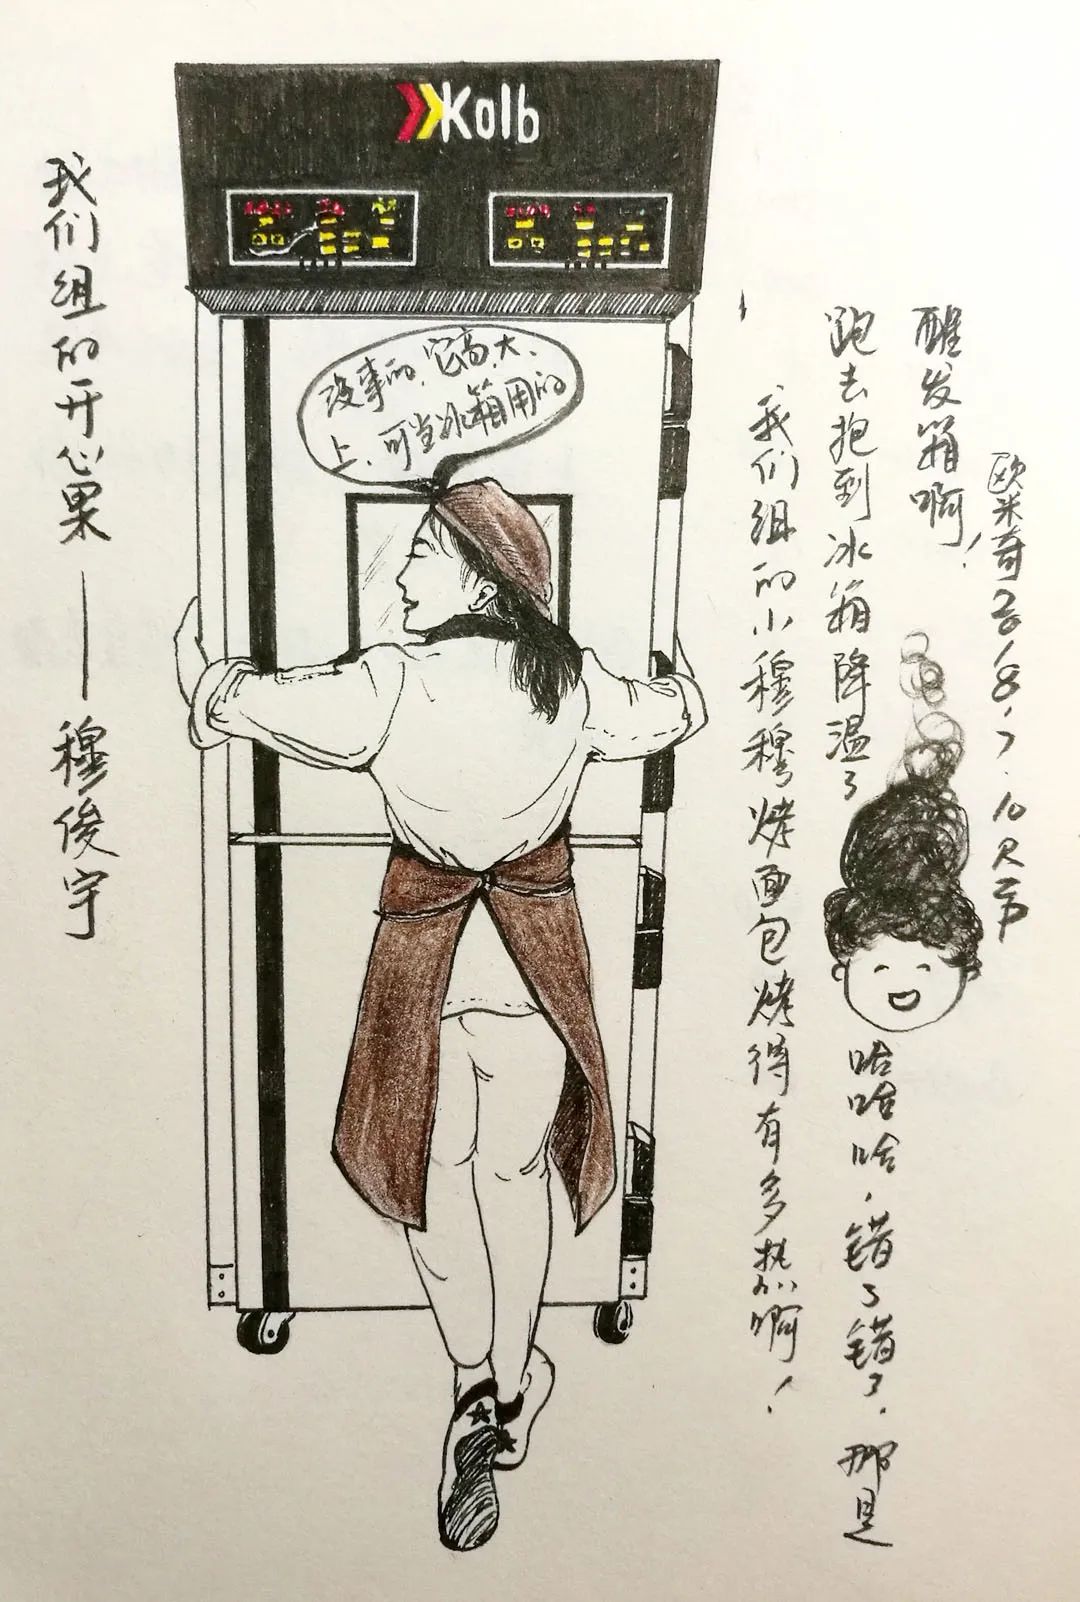 Kolb
我们组的开心果——穆俊宇
没事的、它高、大、
上、可当冰箱用的
我们组的小穆穆烤面包烤得有多热啊！
跑去抱到冰箱降温了
哈哈哈，错了错了，那是
醒发箱啊！
欧米奇2018.7.10